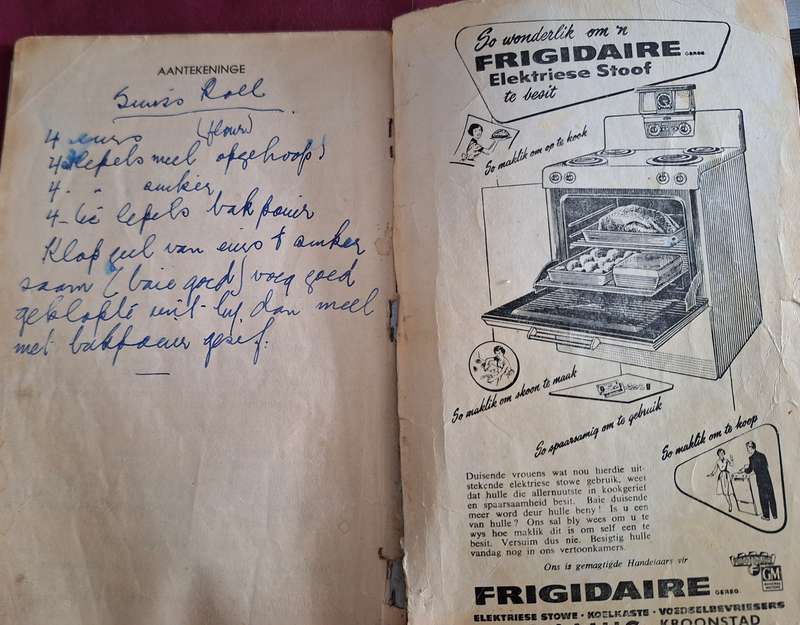 AANTEKENINGE
Swiss Roll
4 eiers (flour)
4 lepels meel opgehoop
4 " suiker
4 lepels bakpoeier
Klop geel van eiers & suiker
saam (baie goed) voeg goed
geklopte wit by, dan meel
met bakpoeier gesif.
So wonderlik om 'n
FRIGIDAIRE GEREG
Elektriese Stoof
te besit
So maklik om op te kook
So maklik om skoon te maak
So spaarsamig om te gebruik
So maklik om te koop
Duisende vrouens wat nou hierdie uit-
stekende elektriese stowe gebruik, weet
dat hulle die allernuutste in kookgerief
en spaarsaamheid besit. Baie duisende
meer word deur hulle beny! Is u een
van hulle? Ons sal bly wees om u te
wys hoe maklik dit is om self een te
besit. Versuim dus nie. Besigtig hulle
vandag nog in ons vertoonkamers.
Ons is gemagtigde Handelaars vir
FRIGIDAIRE GEREG
GM
GENERAL MOTORS
ELEKTRIESE STOWE · KOELKASTE · VOEDSELBEVRIESERS
KROONSTAD